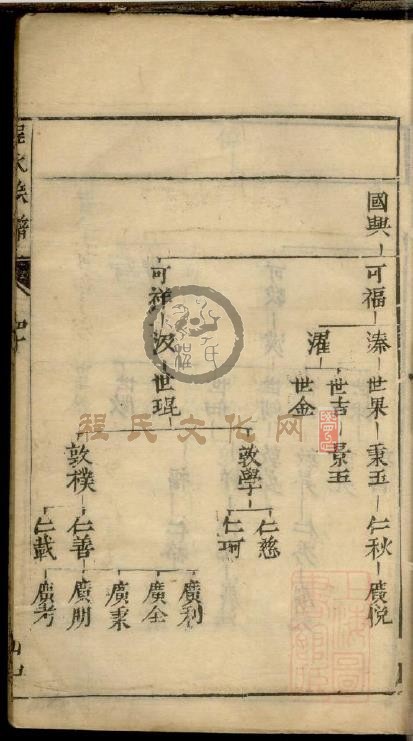 國興
可福
溱
世果
秉玉
仁秋
廣悅
濯
世吉
景玉
世金
可祥
汲
世琨
敦學
仁慈
仁珂
敦樸
仁善
廣利
廣全
廣秉
廣朋
仁載
廣考
程氏文化网
程氏族譜